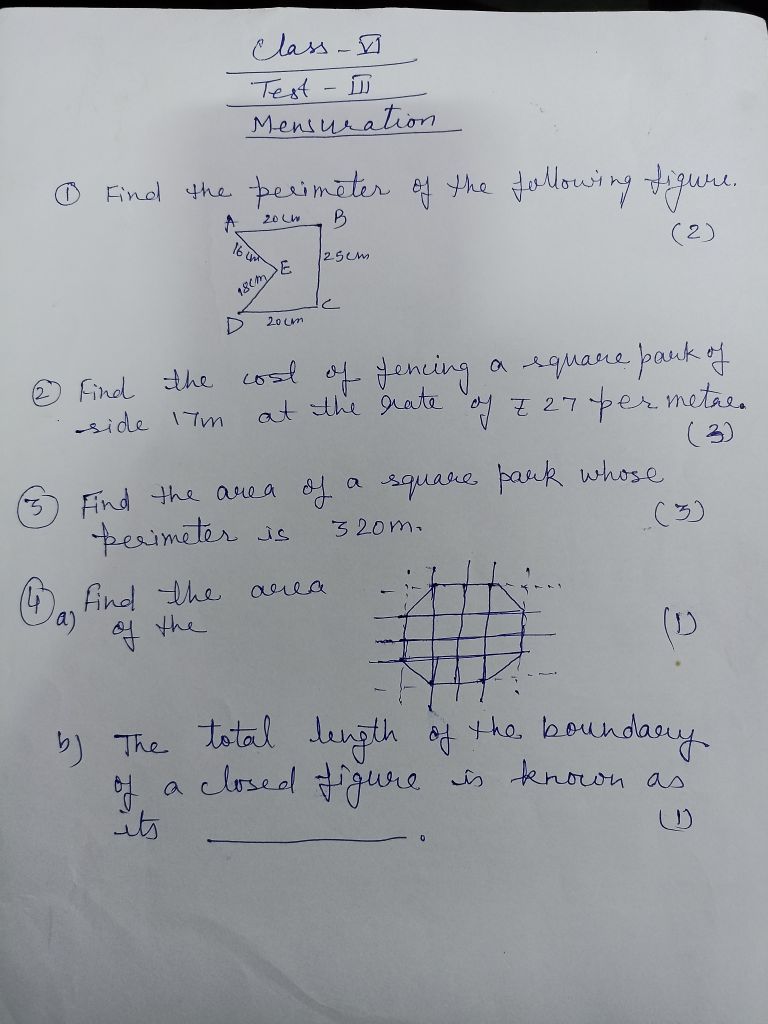 Class - VI
Test - III
Mensuration
① Find the perimeter of the following figure.
(2)
A 20cm B
16cm
E 25cm
18cm
D 20cm C
② Find the cost of fencing a square park of
side 17m at the rate of ₹ 27 per metre.
(3)
③ Find the area of a square park whose
perimeter is 320m.
(3)
④ a) Find the area
of the
(1)
b) The total length of the boundary
of a closed figure is known as
its ________ .
(1)